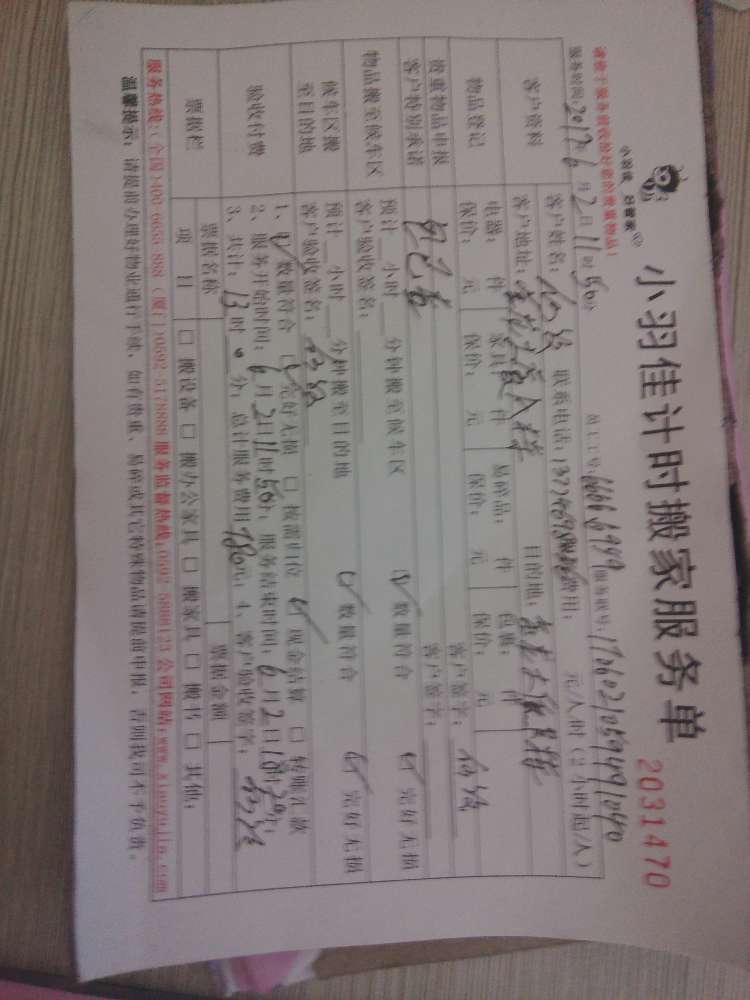 小羽佳 好管家
小羽佳计时搬家服务单
2031470
请给予服务前收拾好您的贵重物品！
服务时间：2017年6月2日11时50分 员工工号： 服务账号：
客户资料 客户姓名： 联系电话： 费用： 元/人时（2小时起/人）
客户地址： 目的地：
物品登记 电器： 件 家具： 件 易碎品： 件 包裹： 件
保价： 元 保价： 元 保价： 元 保价： 元 客户签字：
贵重物品申报
客户特别承诺 客户签字：
物品搬至候车区 预计__小时__分钟搬至候车区 数量符合 完好无损
客户验收签名：
候车区搬至目的地 预计__小时__分钟搬至目的地 数量符合 完好无损
客户验收签名：
验收付费 1、数量符合 完好无损 □ 按需归位 现金结算 □ 转账汇款
2、服务开始时间：6月2日11时50分，服务结束时间：6月2日18时30分；
3、共计：13时 分；总计服务费用780元；4、客户验收签字：
票据栏 票据名称 票据金额
项目 □ 搬设备 □ 搬办公家具 □ 搬家具 □ 搬书 □ 其他：
服务热线：（全国）400-6655-888（厦门）0592-5178888 服务监督热线：0592-5888123 公司网站：www.xiaoyujia.com
温馨提示：请提前办理好物业通行手续，如有贵重、易碎或其它特殊物品请提前申报，否则我司不予负责。